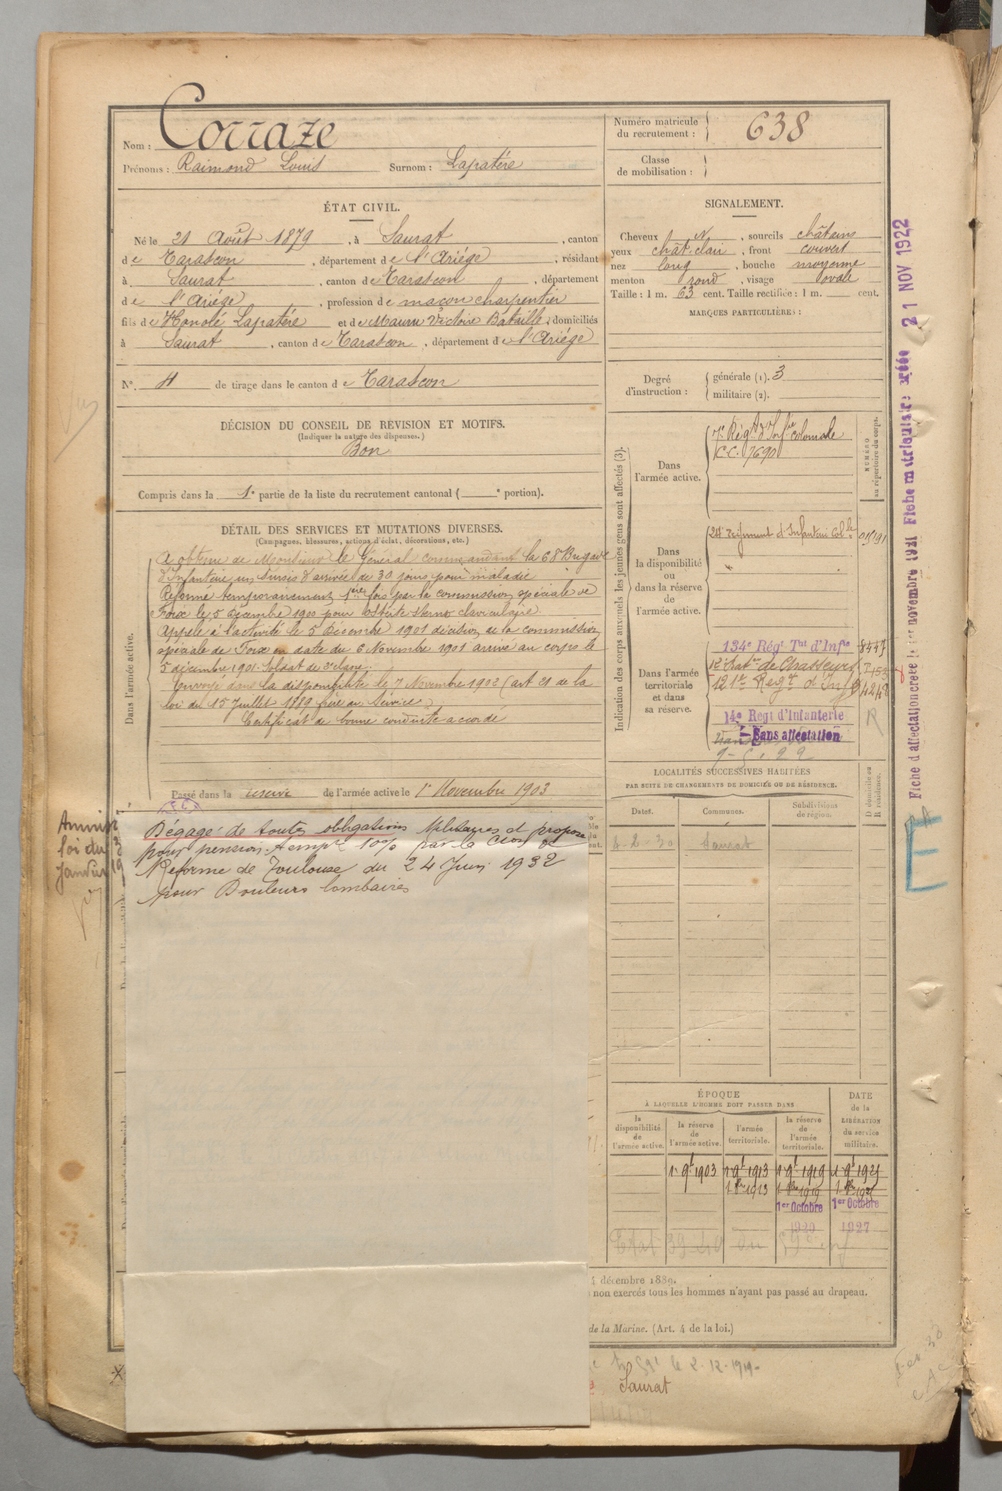 Nom : Corraze
Prénoms : Raimond Louis Surnom : Lapatère
Numéro matricule du recrutement : 638
Classe de mobilisation :
ÉTAT CIVIL.
Né le 21 Août 1879, à Saurat, canton
de Tarascon, département de l'Ariége, résidant
à Saurat, canton de Tarascon, département
de l'Ariége, profession de maçon charpentier
fils de Honoté Lapatère et de Maurin Victoire Bataille, domiciliés
à Saurat, canton de Tarascon, département de l'Ariége
N°. 11 de tirage dans le canton de Tarascon
SIGNALEMENT.
Cheveux N, sourcils châtains
yeux chât. clair, front couvert
nez long, bouche moyenne
menton rond, visage ovale
Taille : 1 m. 63 cent. Taille rectifiée : 1 m. cent.
MARQUES PARTICULIÈRES :
Degré d'instruction : générale (1). 3
militaire (2).
DÉCISION DU CONSEIL DE RÉVISION ET MOTIFS.
(Indiquer la nature des dispenses.)
Bon
Compris dans la 1e partie de la liste du recrutement cantonal ( e portion).
DÉTAIL DES SERVICES ET MUTATIONS DIVERSES.
(Campagnes, blessures, actions d'éclat, décorations, etc.)
Dans l'armée active.
A obtenu de Monsieur le Général commandant la 68 Brigade
d'Infanterie un sursis d'arrivée de 30 jours pour maladie
Réformé temporairement 1ère fois par la commission spéciale de
Foix le 5 Décembre 1900 pour ostéite sterno claviculaire
Appelé à l'activité le 5 Décembre 1901 décision de la commission
spéciale de Foix en date du 6 Novembre 1901 arrivé au corps le
5 décembre 1901. Soldat de 2e classe.
Envoyé dans la disponibilité le 7 Novembre 1902 (art 21 de la
loi du 15 juillet 1889 frère au service)
Certificat de bonne conduite accordé
Passé dans la réserve de l'armée active le 1er Novembre 1903
Dégagé de toutes obligations Militaires et proposé
pour pension tempre 10% par la Cion de
Réforme de Toulouse du 24 Juin 1932
pour Douleurs lombaires
loi du
Indication des corps auxquels les jeunes gens sont affectés (3).
NUMÉRO au répertoire du corps.
Dans l'armée active.
7e Régt d'Infie coloniale
CC. 7690
Dans la disponibilité ou dans la réserve de l'armée active.
24 Régiment d'Infanterie Colle 01591
Dans l'armée territoriale et dans sa réserve.
134e Régt Tal d'Infie
12e Bat de Chasseurs
121e Regt d'Inf
14e Regt d'Infanterie
Sans affectation
R
LOCALITÉS SUCCESSIVES HABITÉES
PAR SUITE DE CHANGEMENTS DE DOMICILE OU DE RÉSIDENCE.
Dates. Communes. Subdivisions de région. D domicile ou R résidence.
8-2-30 Saurat
ÉPOQUE
À LAQUELLE L'HOMME DOIT PASSER DANS
la disponibilité de l'armée active. la réserve de l'armée active. l'armée territoriale. la réserve de l'armée territoriale.
DATE de la LIBÉRATION du service militaire.
1er 9bre 1903 1er 9bre 1913 1er 9bre 1919 1er 9bre 1925
1er Octobre 1er Octobre
1920 1927
décembre 1889.
non exercés tous les hommes n'ayant pas passé au drapeau.
de la Marine. (Art. 4 de la loi.)
le 2-12-1919
Saurat
Fiche d'affectation créée le 1er novembre 1921 Fiche matriculaire créée 21 NOV 1922
E